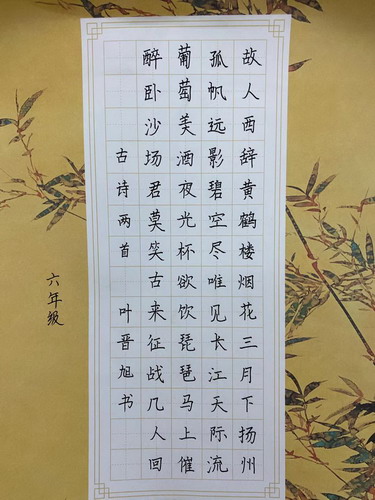 故人西辞黄鹤楼烟花三月下扬州
孤帆远影碧空尽唯见长江天际流
葡萄美酒夜光杯欲饮琵琶马上催
醉卧沙场君莫笑古来征战几人回
古诗两首 叶晋旭书
六年级